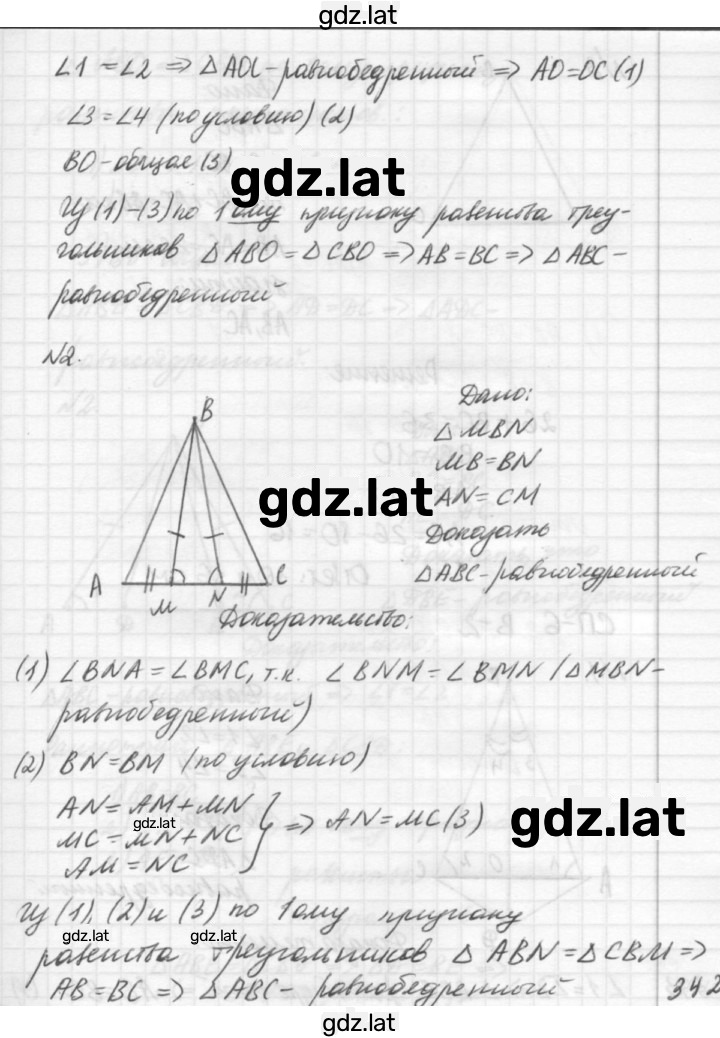 gdz.lat
∠1 = ∠2 => △AOC - равнобедренный => AO = OC (1)
∠3 = ∠4 (по условию) (2)
BO - общая (3)
gdz.lat
Из (1)-(3) по 1ому признаку равенства треу-
гольников △ABO = △CBO => AB = BC => △ABC -
равнобедренный
№2.
Дано:
△MBN
MB = BN
AN = CM
Доказать
△ABC - равнобедренный
B
gdz.lat
A
M
N
C
Доказательство:
(1) ∠BNA = ∠BMC, т.к. ∠BNM = ∠BMN (△MBN -
равнобедренный)
(2) BN = BM (по условию)
AN = AM + MN
gdz.lat
MC = MN + NC
AM = NC
=> AN = MC (3)
gdz.lat
Из (1), (2) и (3) по 1ому признаку
gdz.lat
gdz.lat
равенства треугольников △ABN = △CBM =>
AB = BC => △ABC - равнобедренный
342
gdz.lat